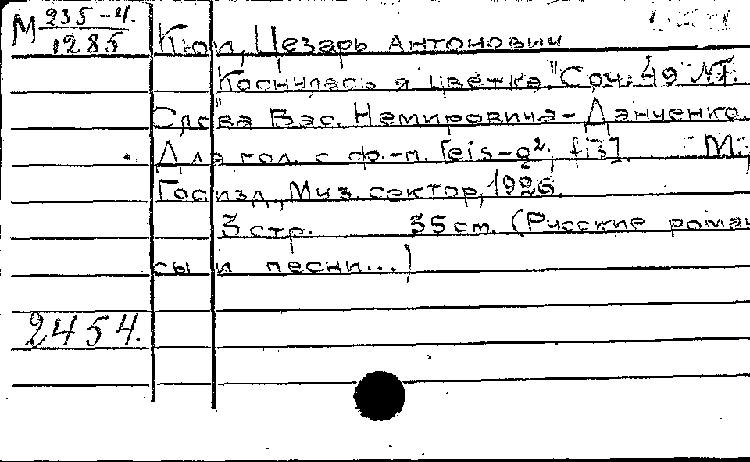 М 235-4.
1285
Кюи, Цезарь Антонович
"Коснулась я цветка." Соч. 49 № 1.
Слова Вас. Немировича-Данченко.
Для гол. с ф.-п. [eis-g²; fis]. М.,
Госизд., Муз. сектор, 1926.
3 стр. 35 см. (Русские роман
сы и песни...)
2454.